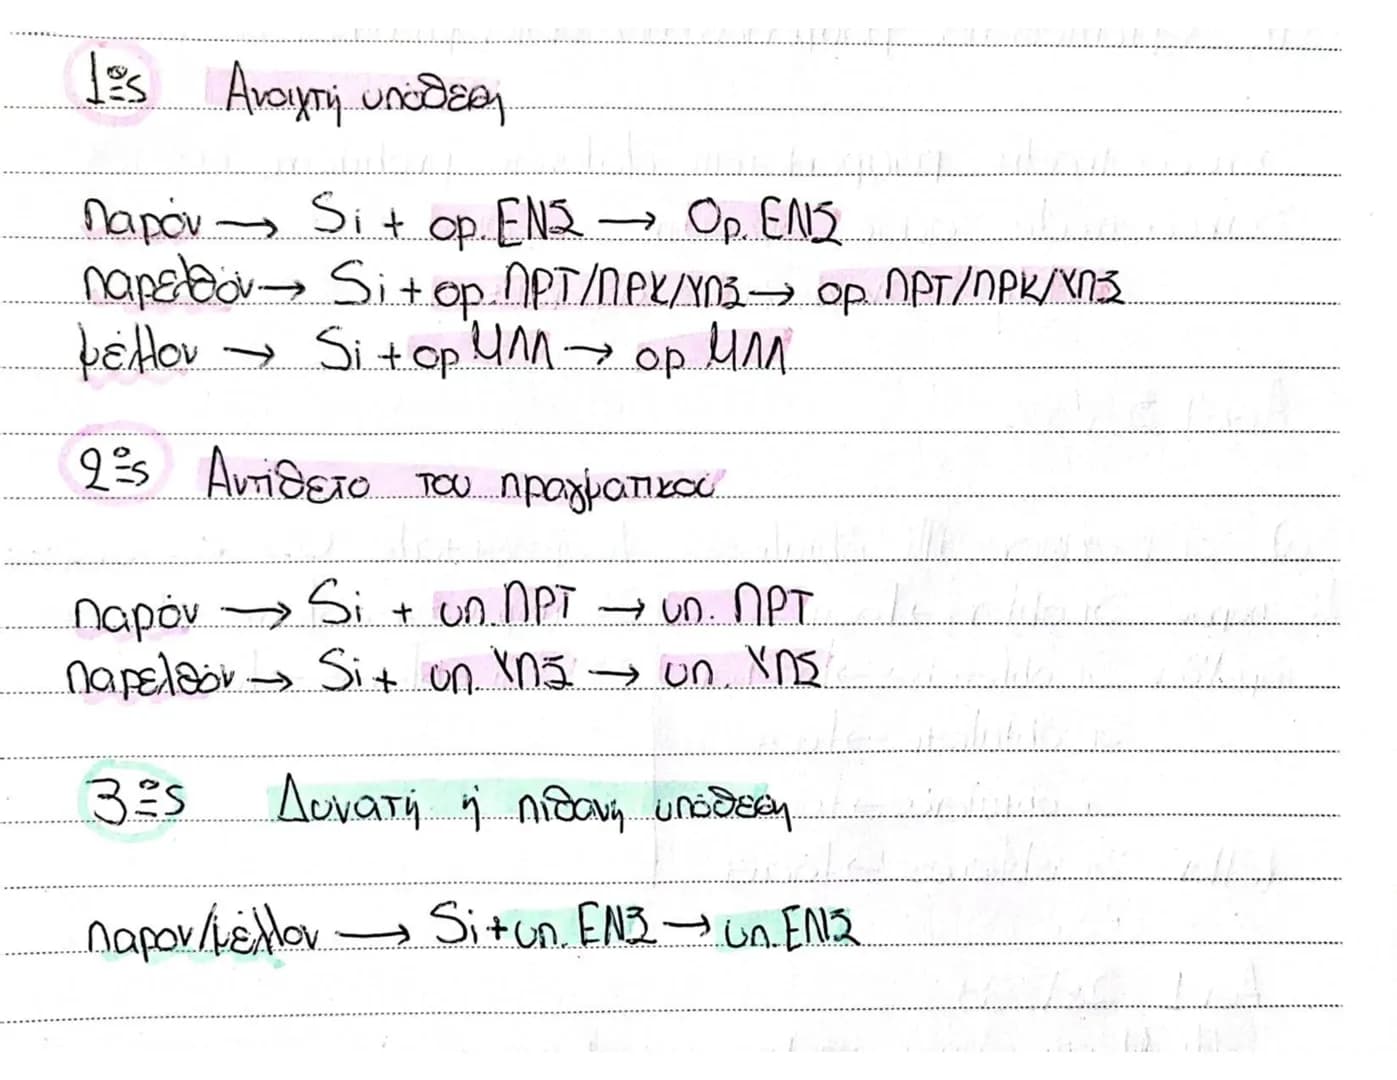 1ος Ανοιχτή υπόθεση
Παρόν → Si + ορ. ΕΝΣ → Ορ. ΕΝΣ
Παρελθόν → Si + ορ. ΠΡΤ/ΠΡΚ/ΥΠΣ → ορ. ΠΡΤ/ΠΡΚ/ΥΠΣ
μέλλον → Si + ορ ΜΛΛ → ορ ΜΛΛ
2ος Αντίθετο του πραγματικού
Παρόν → Si + υπ. ΠΡΤ → υπ. ΠΡΤ
Παρελθόν → Si + υπ. ΥΠΣ → υπ. ΥΠΣ
3ος Δυνατή ή πιθανή υπόθεση
Παρον/μέλλον → Si + υπ. ΕΝΣ → υπ. ΕΝΣ